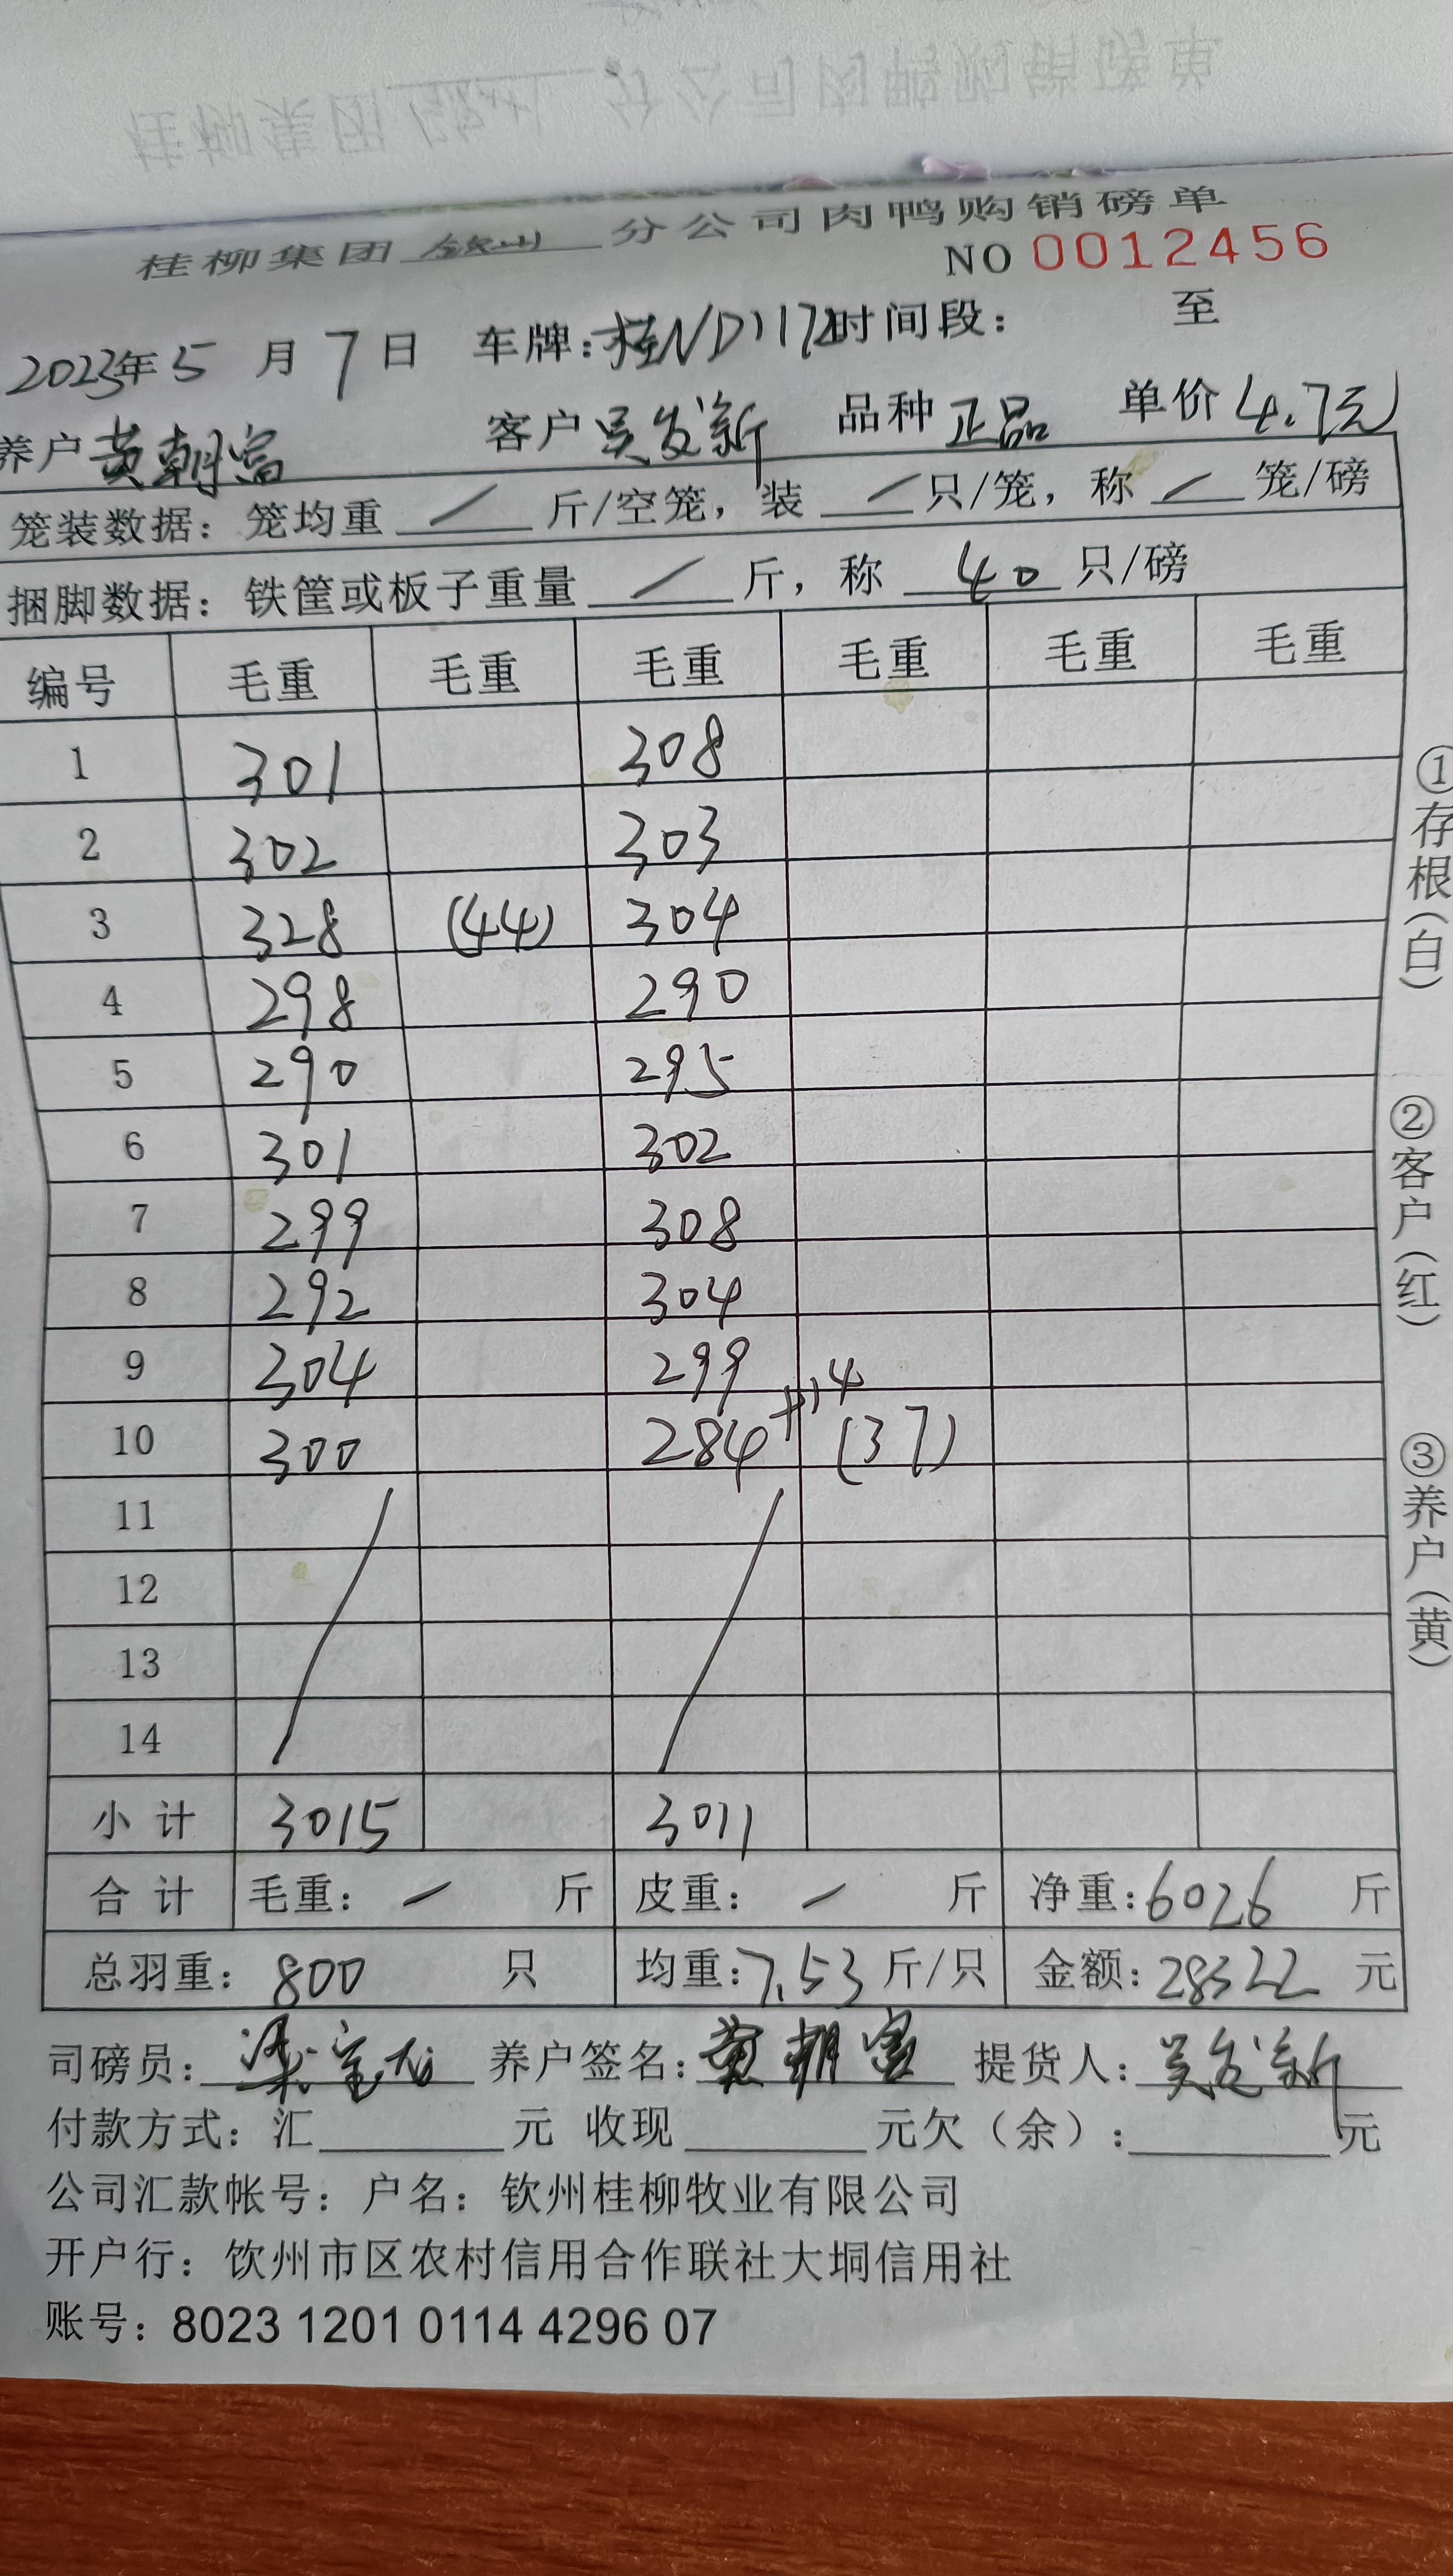 桂柳集团 钦州 分公司肉鸭购销磅单
NO 0012456
2023年5月7日 车牌:桂ND1172 时间段: 至
养户 黄朝富 客户 吴发新 品种 正品 单价 4.7元
笼装数据: 笼均重 / 斤/空笼, 装 / 只/笼, 称 / 笼/磅
捆脚数据: 铁筐或板子重量 / 斤, 称 40 只/磅
编号 毛重 毛重 毛重 毛重 毛重 毛重
1 301 308
2 302 303
3 328 (44) 304
4 298 290
5 290 295
6 301 302
7 299 308
8 292 304
9 304 299
10 300 284+14 (37)
11
12
13
14
小计 3015 3011
合计 毛重: / 斤 皮重: / 斤 净重:6026 斤
总羽重: 800 只 均重:7.53 斤/只 金额:28322 元
司磅员: 养户签名:黄朝富 提货人:吴发新
付款方式: 汇 元 收现 元欠(余): 元
公司汇款帐号: 户名: 钦州桂柳牧业有限公司
开户行: 钦州市区农村信用合作联社大垌信用社
账号: 8023 1201 0114 4296 07
①存根(白)
②客户(红)
③养户(黄)